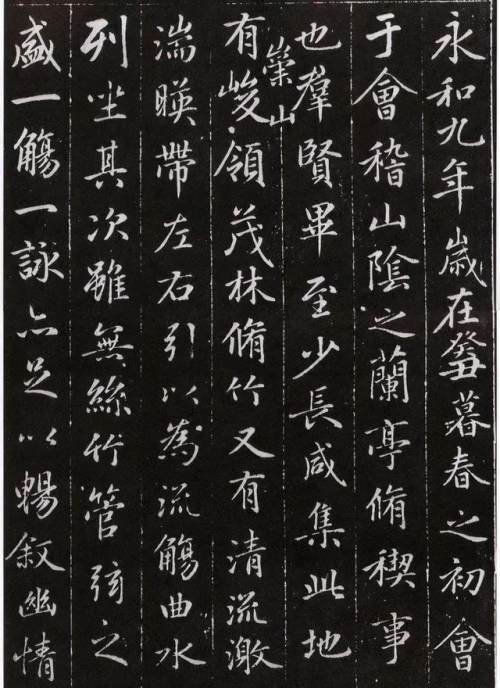 永和九年歲在癸丑暮春之初會
于會稽山陰之蘭亭脩禊事
也羣賢畢至少長咸集此地
有崇山峻領茂林脩竹又有清流激
湍暎帶左右引以為流觴曲水
列坐其次雖無絲竹管弦之
盛一觴一詠亦足以暢叙幽情